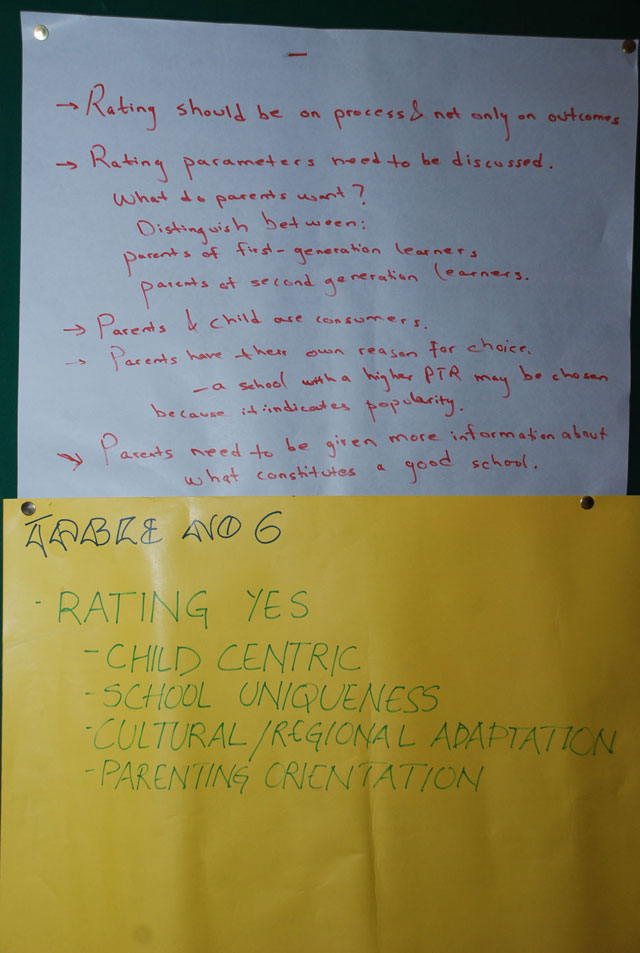 → Rating should be on process & not only on outcomes
→ Rating parameters need to be discussed.
What do parents want?
Distinguish between:
parents of first-generation learners
parents of second generation learners.
→ Parents & child are consumers.
→ Parents have their own reason for choice.
- a school with a higher PTR may be chosen
because it indicates popularity.
→ Parents need to be given more information about
what constitutes a good school.
TABLE NO 6
- RATING YES
- CHILD CENTRIC
- SCHOOL UNIQUENESS
- CULTURAL/REGIONAL ADAPTATION
- PARENTING ORIENTATION